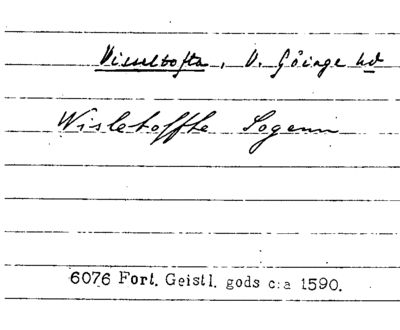 Visseltofta, V. Göinge hd
Wisletoffthe Sogenn
6076 Fort. Geistl. gods c:a 1590.